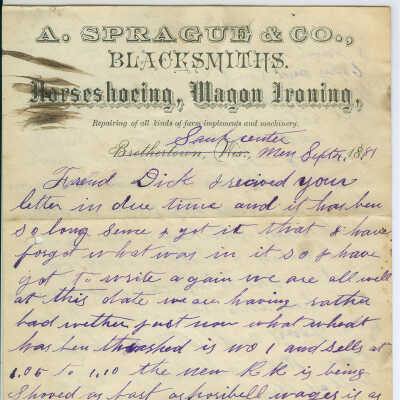 A. SPRAGUE & CO.,
BLACKSMITHS.
Horseshoeing, Wagon Ironing,
Repairing of all kinds of farm implements and machinery.
Sauk center
Brothertown, Wis., Men Sept 1881
Friend Dick I recived your
letter in due time and it has ben
so long sence I got it that I have
forgot what was in it so I have
got to write again we are all well
at this date we are having rather
bad wether just now what wheat
has ben thrashed is no 1 and sells at
1.05 to 1.10 the new R R is being
Shoved as fast as posibell wages is as